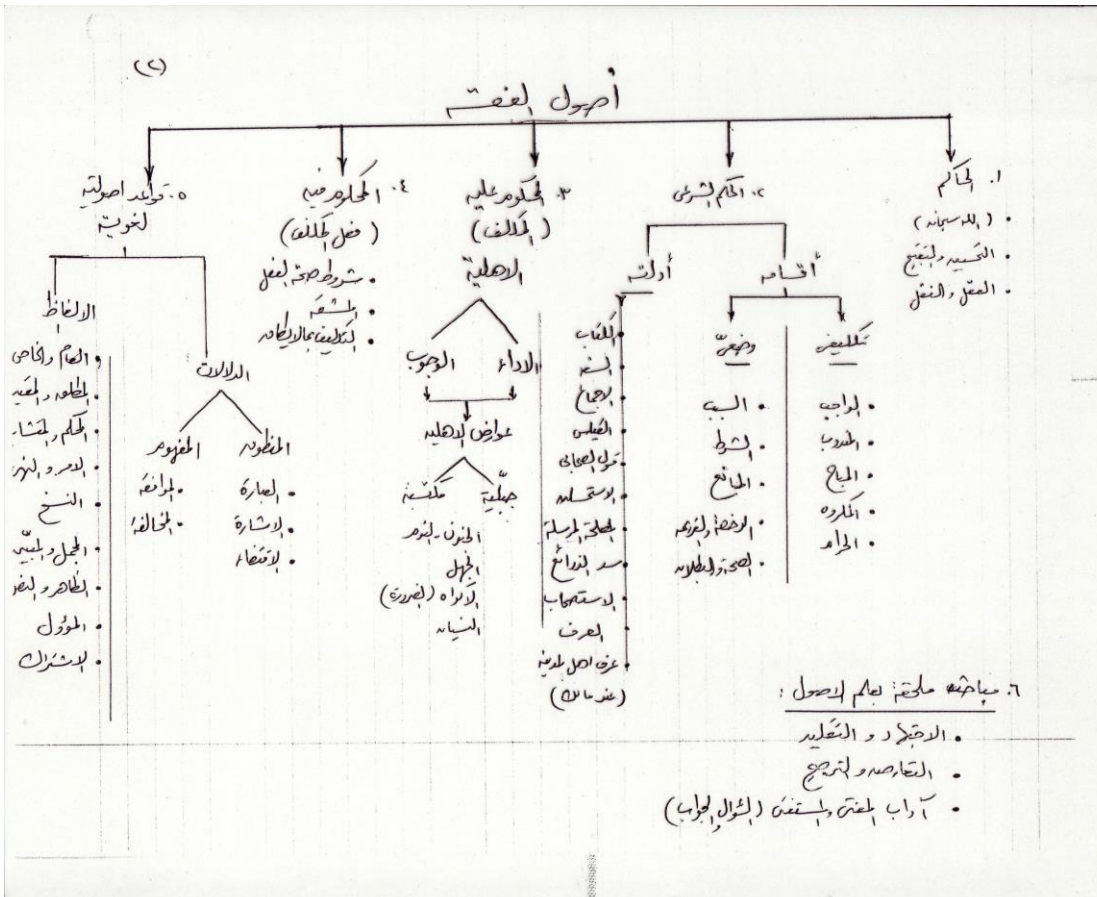 (٢)
أصول الفقه
١. الحاكم
• (الله سبحانه)
• التحسين والتقبيح
• العقل والنقل
٢. الحكم الشرعي
أقسامه
تكليفي
• الواجب
• المندوب
• المباح
• المكروه
• الحرام
وضعيّ
• السبب
• الشرط
• المانع
• الرخصة والعزيمة
• الصحة والبطلان
أدلته
• الكتاب
• السنة
• الاجماع
• القياس
• قول الصحابي
• الاستحسان
• المصلحة المرسلة
• سد الذرائع
• الاستصحاب
• العرف
• عرف اهل المدينة
(عند مالك)
٣. المحكوم عليه
(المكلف)
الاهلية
الاداء
الوجوب
عوارض الاهلية
جبلّية
مكتسبة
الجنون - النوم
الجهل
الاكراه (الضرورة)
النسيان
٤. المحكوم فيه
(فعل المكلف)
• شروط صحة الفعل
• المشقة
• التكليف بما لا يطاق
٥. قواعد اصولية
لغوية
الدلالات
المنطوق
• العبارة
• الاشارة
• الاقتضاء
المفهوم
• الموافقة
• المخالفة
الالفاظ
• العام والخاص
• المطلق والمقيد
• المحكم والمتشابه
• الامر والنهي
• النسخ
• المجمل والمبيّن
• الظاهر والنص
• المؤول
• الاشتراك
٦. مباحث ملحقة بعلم الاصول :
• الاجتهاد والتقليد
• التعارض والترجيح
• آداب المفتي والمستفتي (السؤال والجواب)